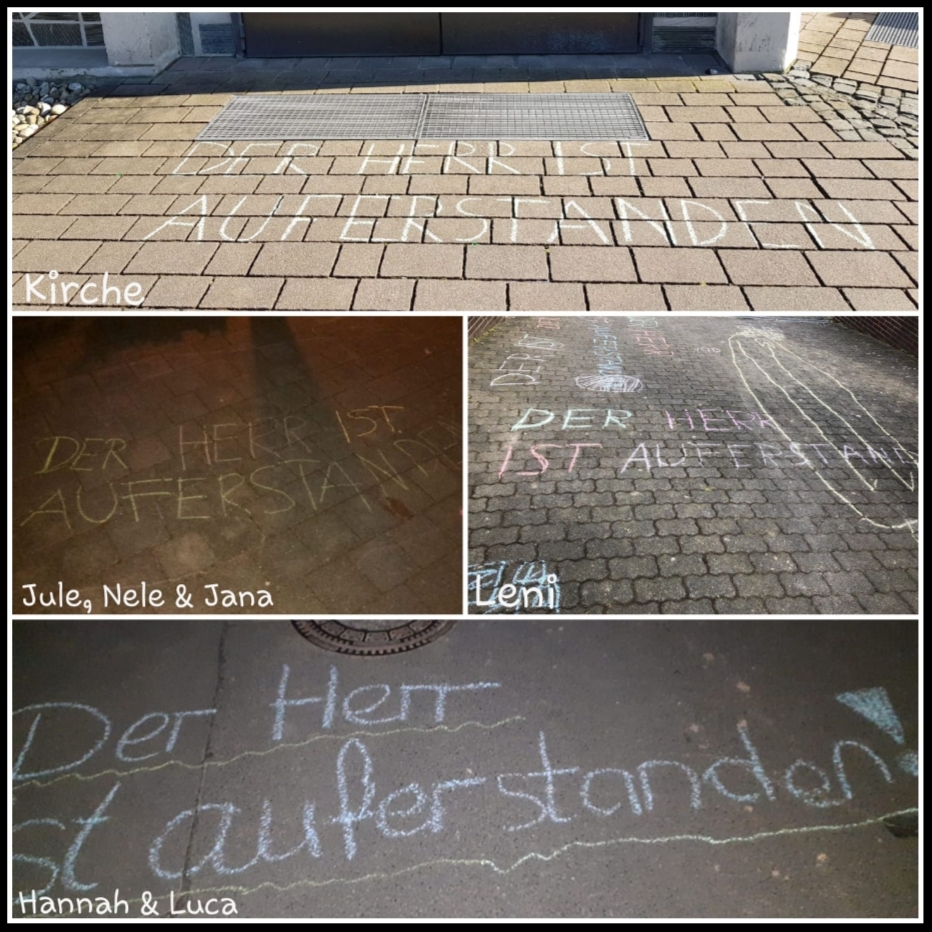 DER HERR IST
AUFERSTANDEN
Kirche
DER HERR IST
AUFERSTANDEN
Jule, Nele & Jana
DER IST
DER HERR
IST AUFERSTAND
Leni
Der Herr
st auferstanden!
Hannah & Luca